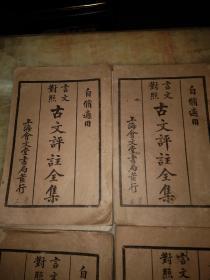 自修適用
言文對照
古文評註全集
上海會文堂書局發行
自修適用
言文對照
古文評註全集
上海會文堂書局發行
自
言文對照
言文對照